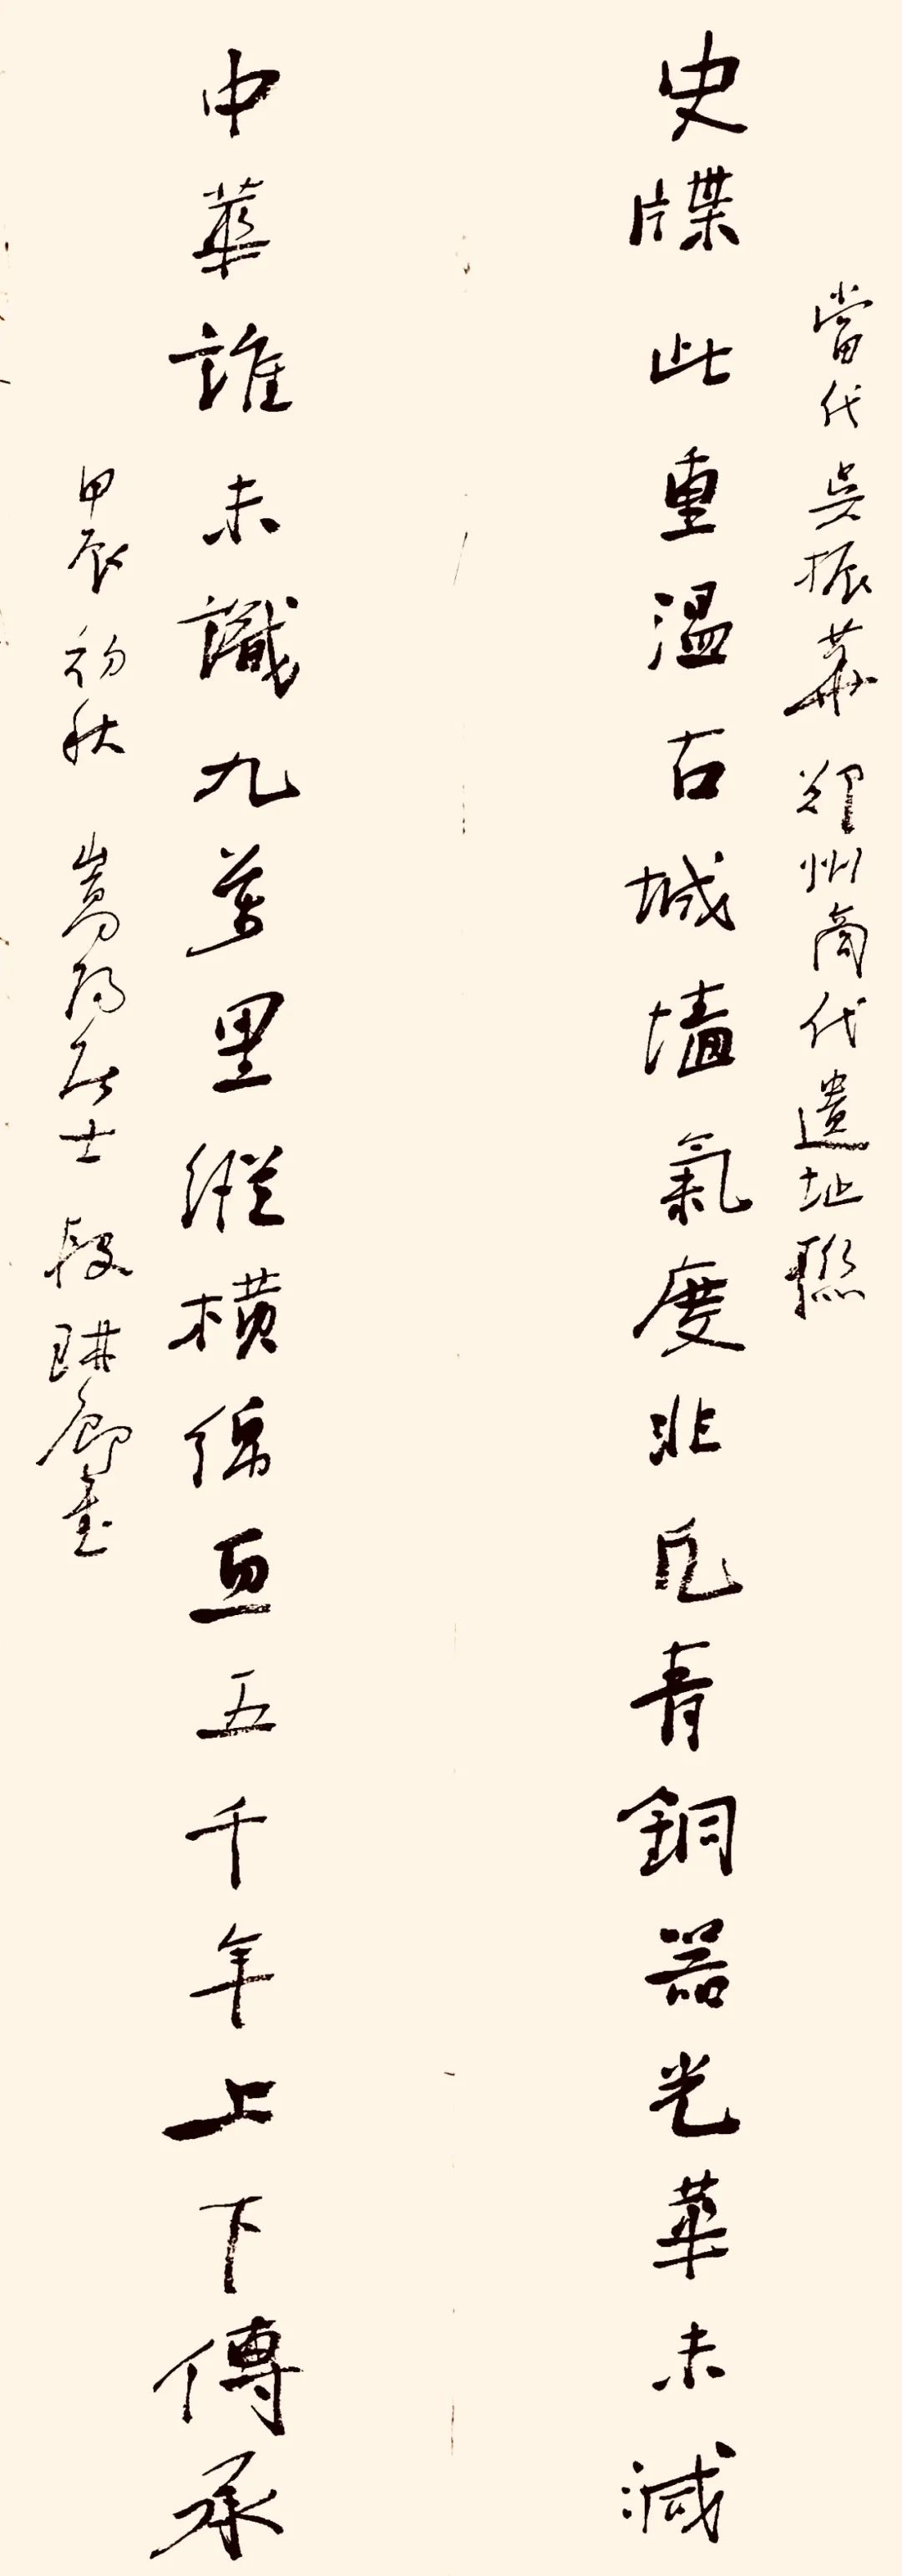 當代吳振華鄭州商代遺址聯
史牒此重溫古城墻氣度非凡青銅器光華未減
中華誰未識九萬里縱橫綿亘五千年上下傳承
甲辰初秋嵩陽居士段耕廊書